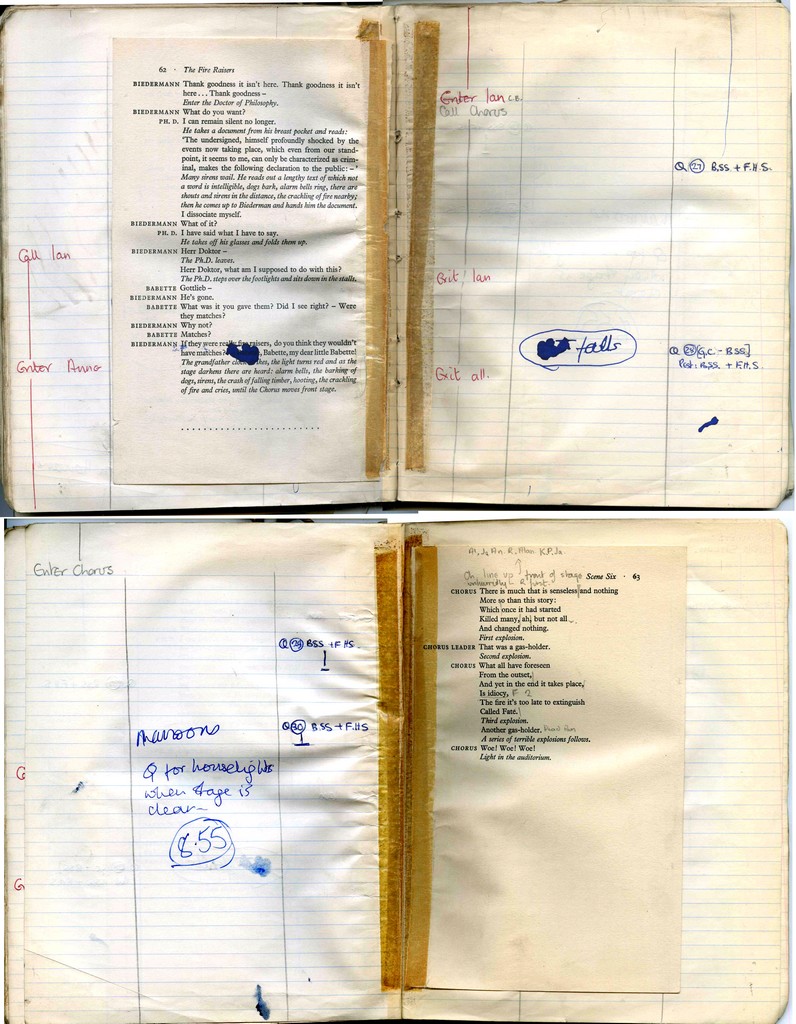 62 · The Fire Raisers
BIEDERMANN Thank goodness it isn't here. Thank goodness it isn't
here . . . Thank goodness –
Enter the Doctor of Philosophy.
BIEDERMANN What do you want?
PH. D. I can remain silent no longer.
He takes a document from his breast pocket and reads:
'The undersigned, himself profoundly shocked by the
events now taking place, which even from our stand-
point, it seems to me, can only be characterized as crim-
inal, makes the following declaration to the public: – '
Many sirens wail. He reads out a lengthy text of which not
a word is intelligible, dogs bark, alarm bells ring, there are
shouts and sirens in the distance, the crackling of fire nearby;
then he comes up to Biederman and hands him the document.
I dissociate myself.
BIEDERMANN What of it?
PH. D. I have said what I have to say.
He takes off his glasses and folds them up.
BIEDERMANN Herr Doktor –
The Ph.D. leaves.
Herr Doktor, what am I supposed to do with this?
The Ph.D. steps over the footlights and sits down in the stalls.
BABETTE Gottlieb –
BIEDERMANN He's gone.
BABETTE What was it you gave them? Did I see right? – Were
they matches?
BIEDERMANN Why not?
BABETTE Matches?
BIEDERMANN If they were really fire raisers, do you think they wouldn't
have matches? Babette, my dear little Babette!
The grandfather the light turns red and as the
stage darkens there are heard: alarm bells, the barking of
dogs, sirens, the crash of falling timber, hooting, the crackling
of fire and cries, until the Chorus moves front stage.
Call Ian
Enter Anna
Enter Ian
Call Chorus
Q 27 B.SS. + F.H.S.
Exit Ian
falls
Exit all.
Q 28 [G.C. - BSS]
Post: B.SS. + F.H.S.
Enter Chorus
Q 29 BSS + F.HS.
1
Maroons
Q 30 B.SS + F.H.S
1
Q for houselights
when stage is
clear
8.55
Ch. line up front of stage
Scene Six · 63
CHORUS There is much that is senseless and nothing
More so than this story:
Which once it had started
Killed many, ah, but not all
And changed nothing.
First explosion.
CHORUS LEADER That was a gas-holder.
Second explosion.
CHORUS What all have foreseen
From the outset,
And yet in the end it takes place,
Is idiocy,
The fire it's too late to extinguish
Called Fate.
Third explosion.
Another gas-holder.
A series of terrible explosions follows.
CHORUS Woe! Woe! Woe!
Light in the auditorium.